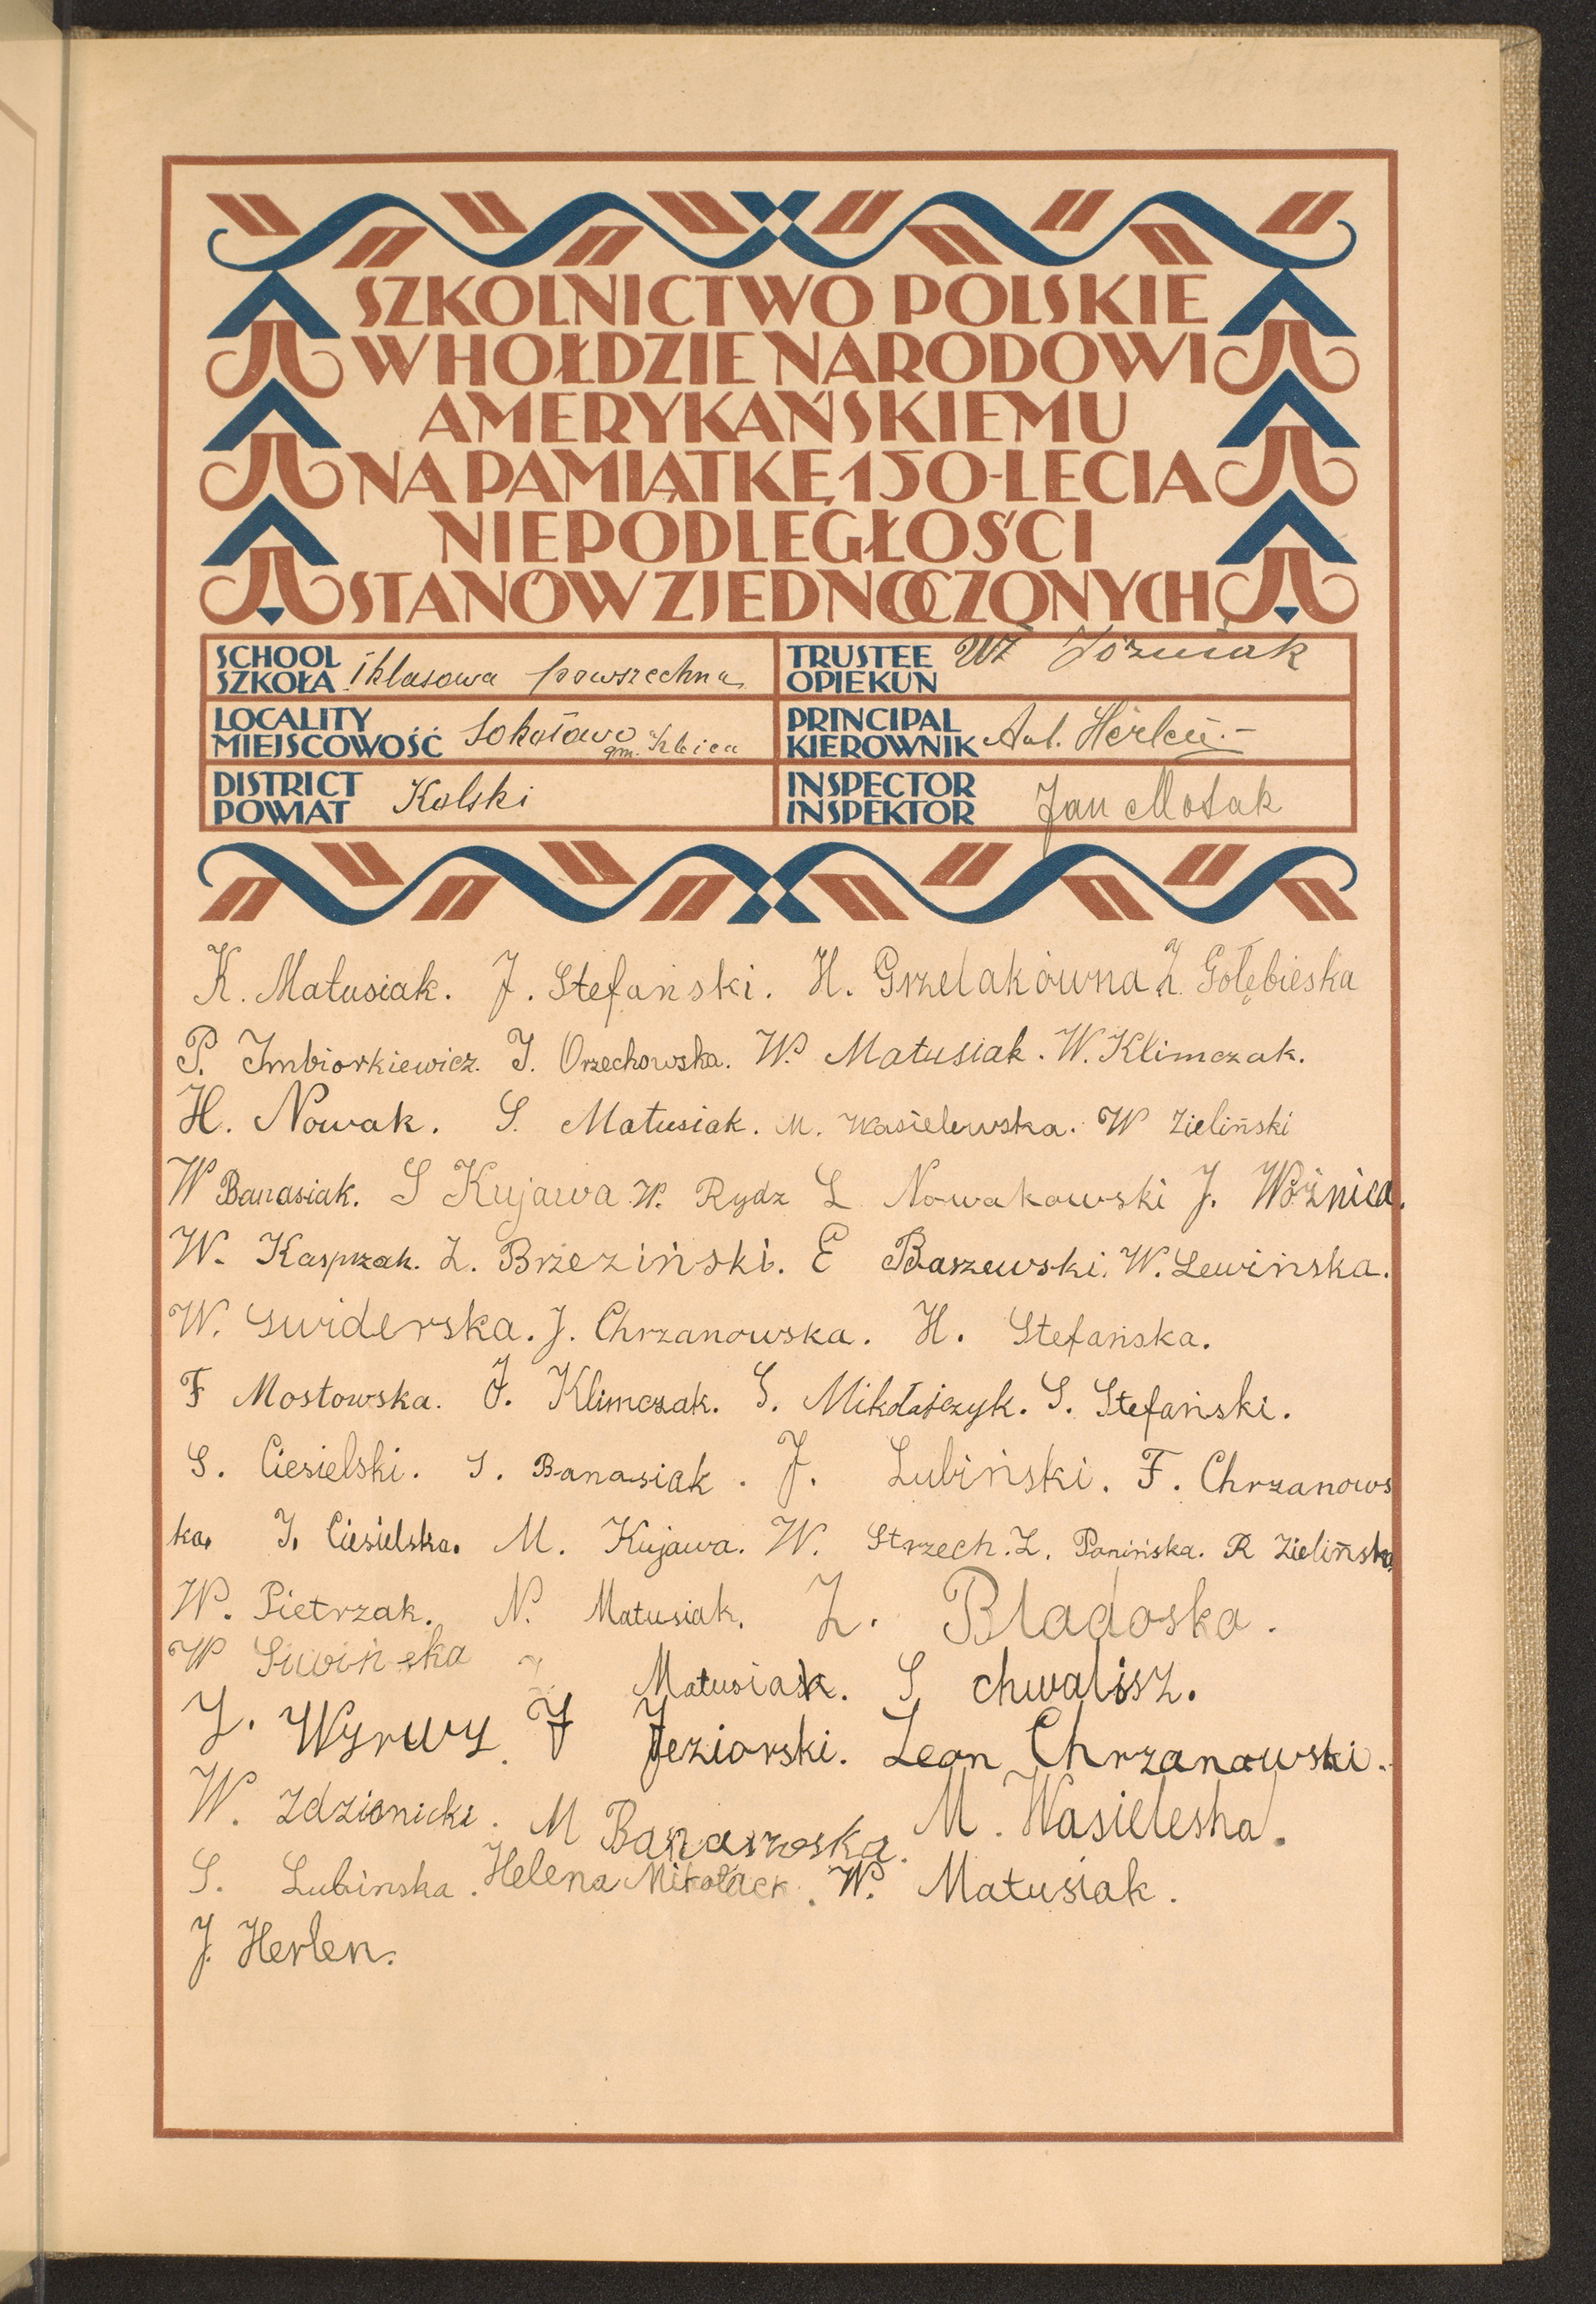 SZKOLNICTWO POLSKIE
W HOŁDZIE NARODOWI
AMERYKAŃSKIEMU
NA PAMIĄTKĘ 150-LECIA
NIEPODLEGŁOŚCI
STANÓW ZJEDNOCZONYCH
SCHOOL SZKOŁA 1 klasowa powszechna
TRUSTEE OPIEKUN Wł Jóźwiak
LOCALITY MIEJSCOWOŚĆ Sokołowo gm. Izbica
PRINCIPAL KIEROWNIK Ant. Herlen
DISTRICT POWIAT Kolski
INSPECTOR INSPEKTOR Jan
K. Matusiak. J. Stefański. H. Grzelakówna Gołębieska
P. Imbiorkiewicz. J. Orzechowska. W. Matusiak. W. Klimczak.
H. Nowak. S. Matusiak. M. Wasielewska. W Zieliński
W Banasiak. S Kujawa W. Rydz L Nowakowski J. Woźnica.
W. Kasprzak. Z. Brzeziński. E Baszewski. W. Lewińska.
W. Swiderska. J. Chrzanowska. H. Stefańska.
F Mostowska. J. Klimczak. S. Mikołajczyk. S. Stefański.
S. Ciesielski. S. Banasiak. J. Lubiński. F. Chrzanows
ka. J. Ciesielska. M. Kujawa. W. Strzech. Z. Panińska. R Zielińska
W. Pietrzak. N. Matusiak. Z. Bladoska.
W Liwińska Matusiak. S chwalisz.
J. Wyrwy. J Jeziorski. Leon Chrzanowski.
W. Zdzionicki. M Banaszoska. M. Wasieleska.
S. Lubinska. Helena W. Matusiak.
J. Herlen.